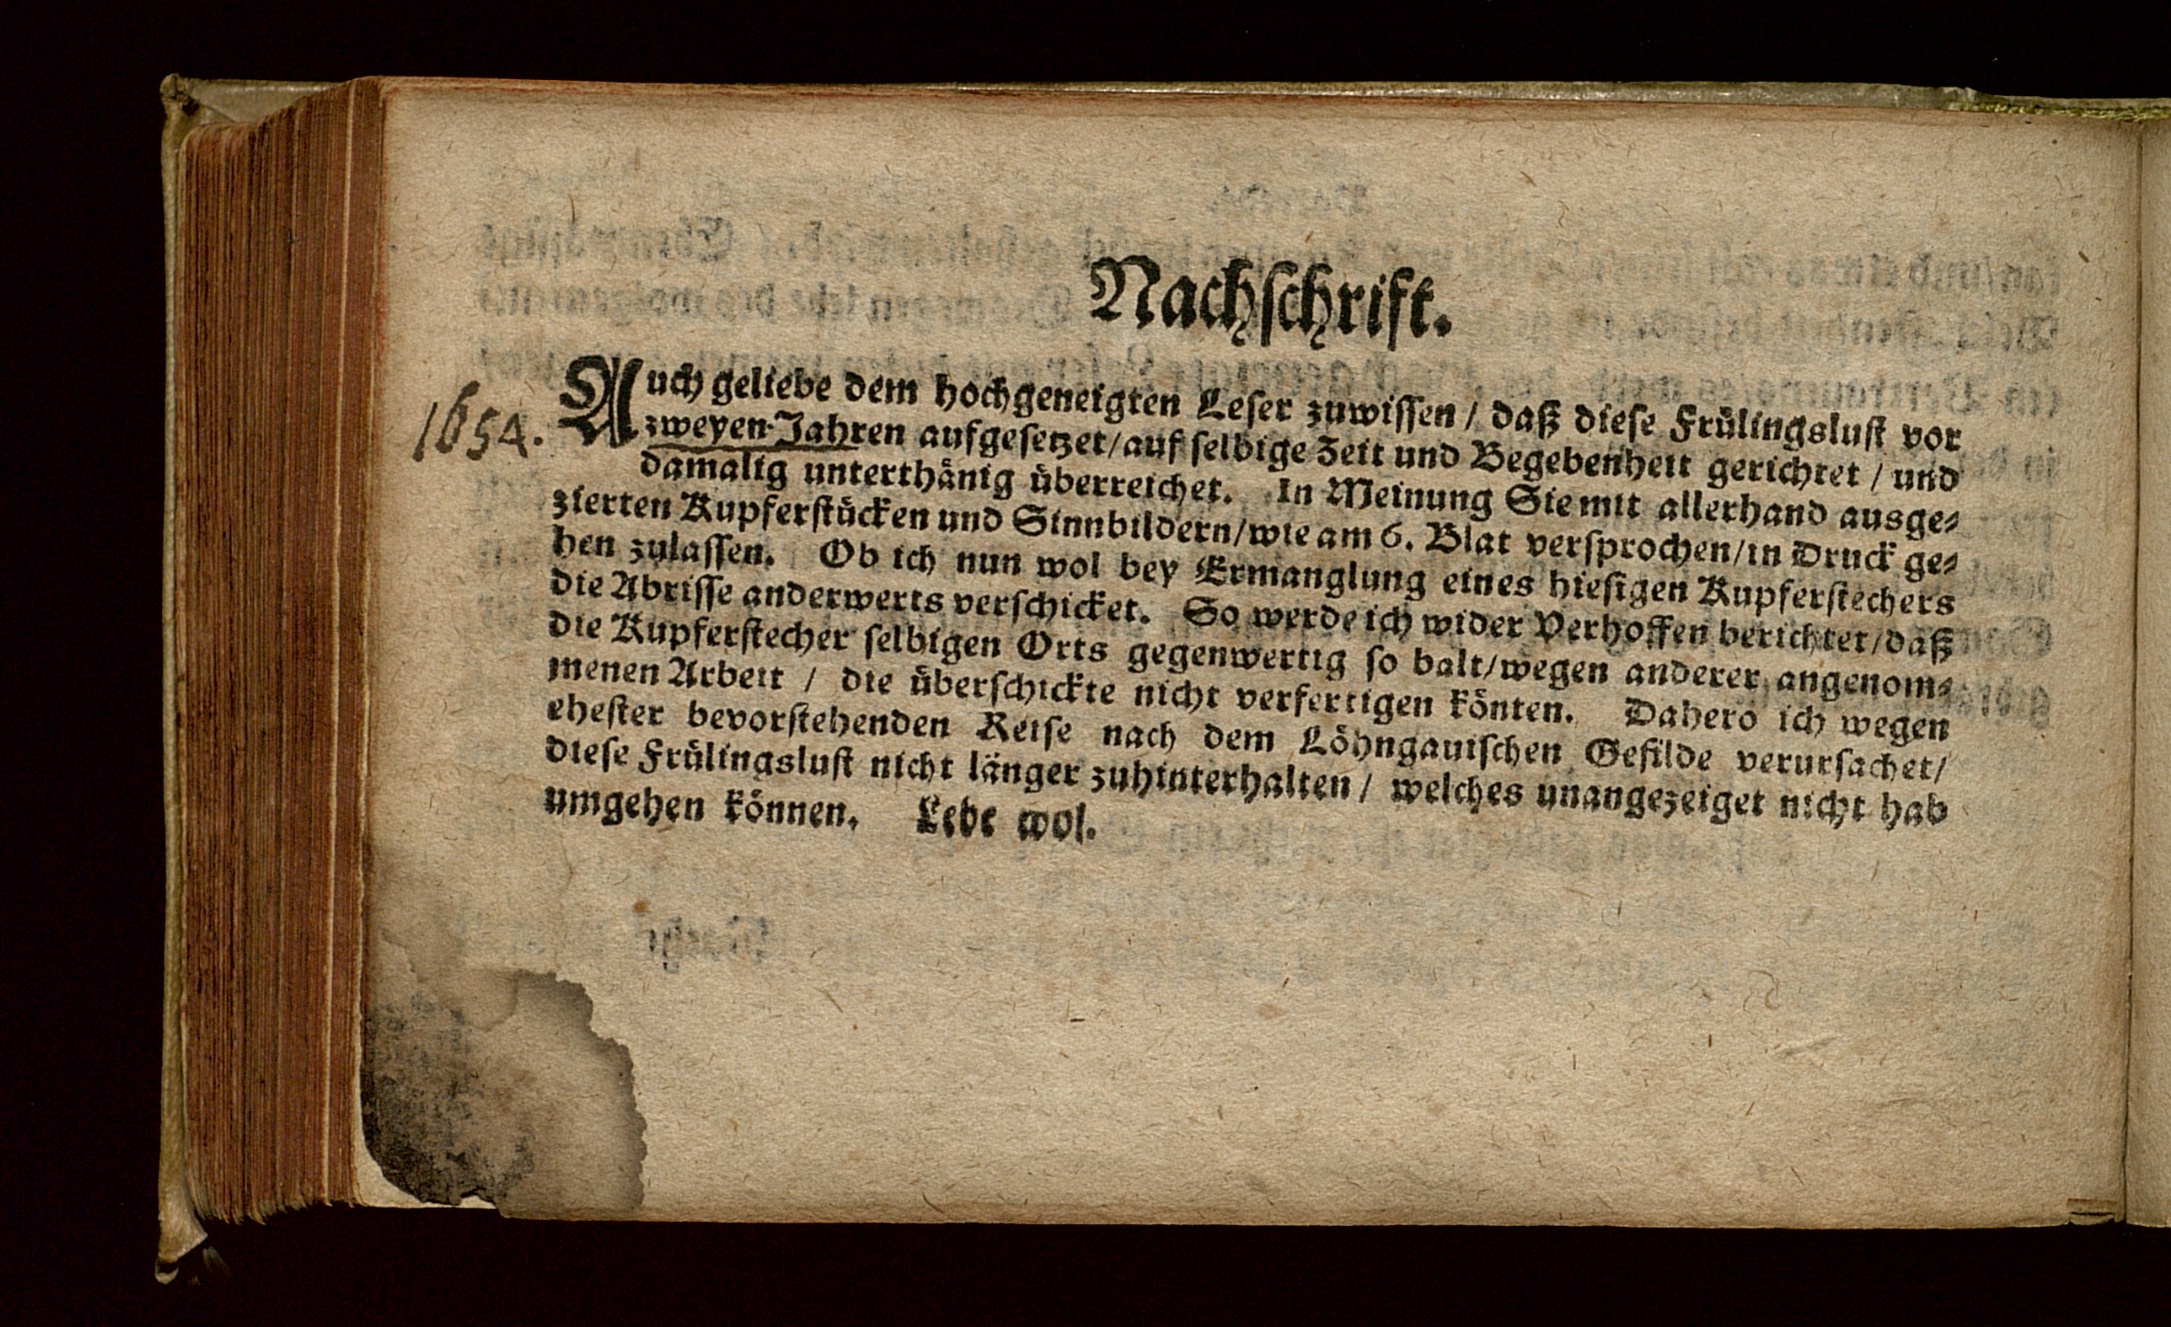 Nachschrift.
1654.
Auch geliebe dem hochgeneigten Leser zuwissen / daß diese Frülingslust vor
zweyen Jahren aufgesetzet/auf selbige Zeit und Begebenheit gerichtet / und
damalig unterthänig überreichet. In Meinung Sie mit allerhand ausge-
zierten Kupferstücken und Sinnbildern/wie am 6. Blat versprochen/in Druck ge-
hen zulassen. Ob ich nun wol bey Ermanglung eines hiesigen Kupferstechers
die Abrisse anderwerts verschicket. So werde ich wider Verhoffen berichtet/daß
die Kupferstecher selbigen Orts gegenwertig so balt/wegen anderer angenom-
menen Arbeit / die überschickte nicht verfertigen könten. Dahero ich wegen
ehester bevorstehenden Reise nach dem Löhngauischen Gefilde verursachet/
diese Frülingslust nicht länger zuhinterhalten / welches unangezeiget nicht hab
umgehen können. Lebe wol.